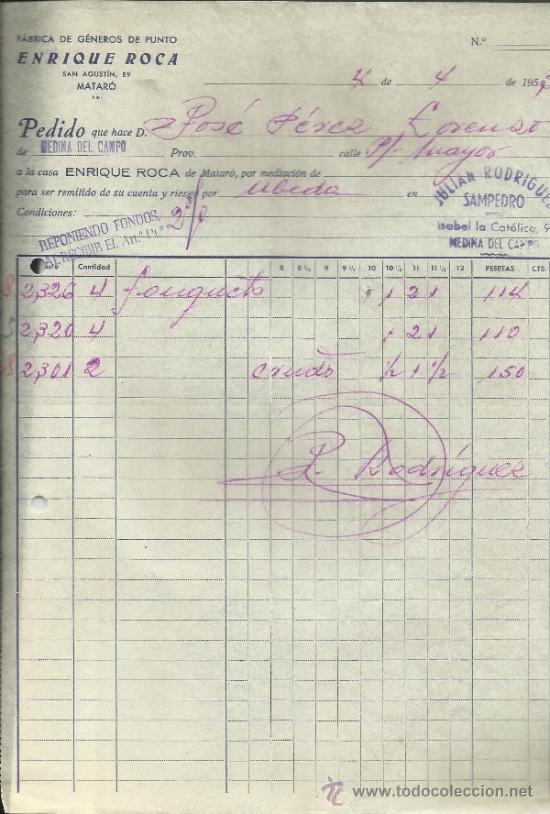 FÁBRICA DE GÉNEROS DE PUNTO
ENRIQUE ROCA
SAN AGUSTÍN, 59
MATARÓ
N.º
4 de 4 de 195
Pedido que hace D. José Pérez Lorenzo
de MEDINA DEL CAMPO Prov. calle P/ Mayor
a la casa ENRIQUE ROCA de Mataró, por mediación de
para ser remitido de su cuenta y riesgo por Ubeda en
JULIAN RODRIGUEZ
SAMPEDRO
Isabel la Católica, 9
MEDINA DEL CAMPO
Condiciones: 2%
REPONIENDO FONDOS,
AL RECIBIR EL
Cantidad 8 8 ½ 9 9 ½ 10 10 ½ 11 11 ½ 12 PESETAS CTS.
2,326 4 1 2 1 114
2,320 4 1 2 1 110
2,301 2 crudo ½ 1 ½ 150
Rodríguez
todocoleccion.net